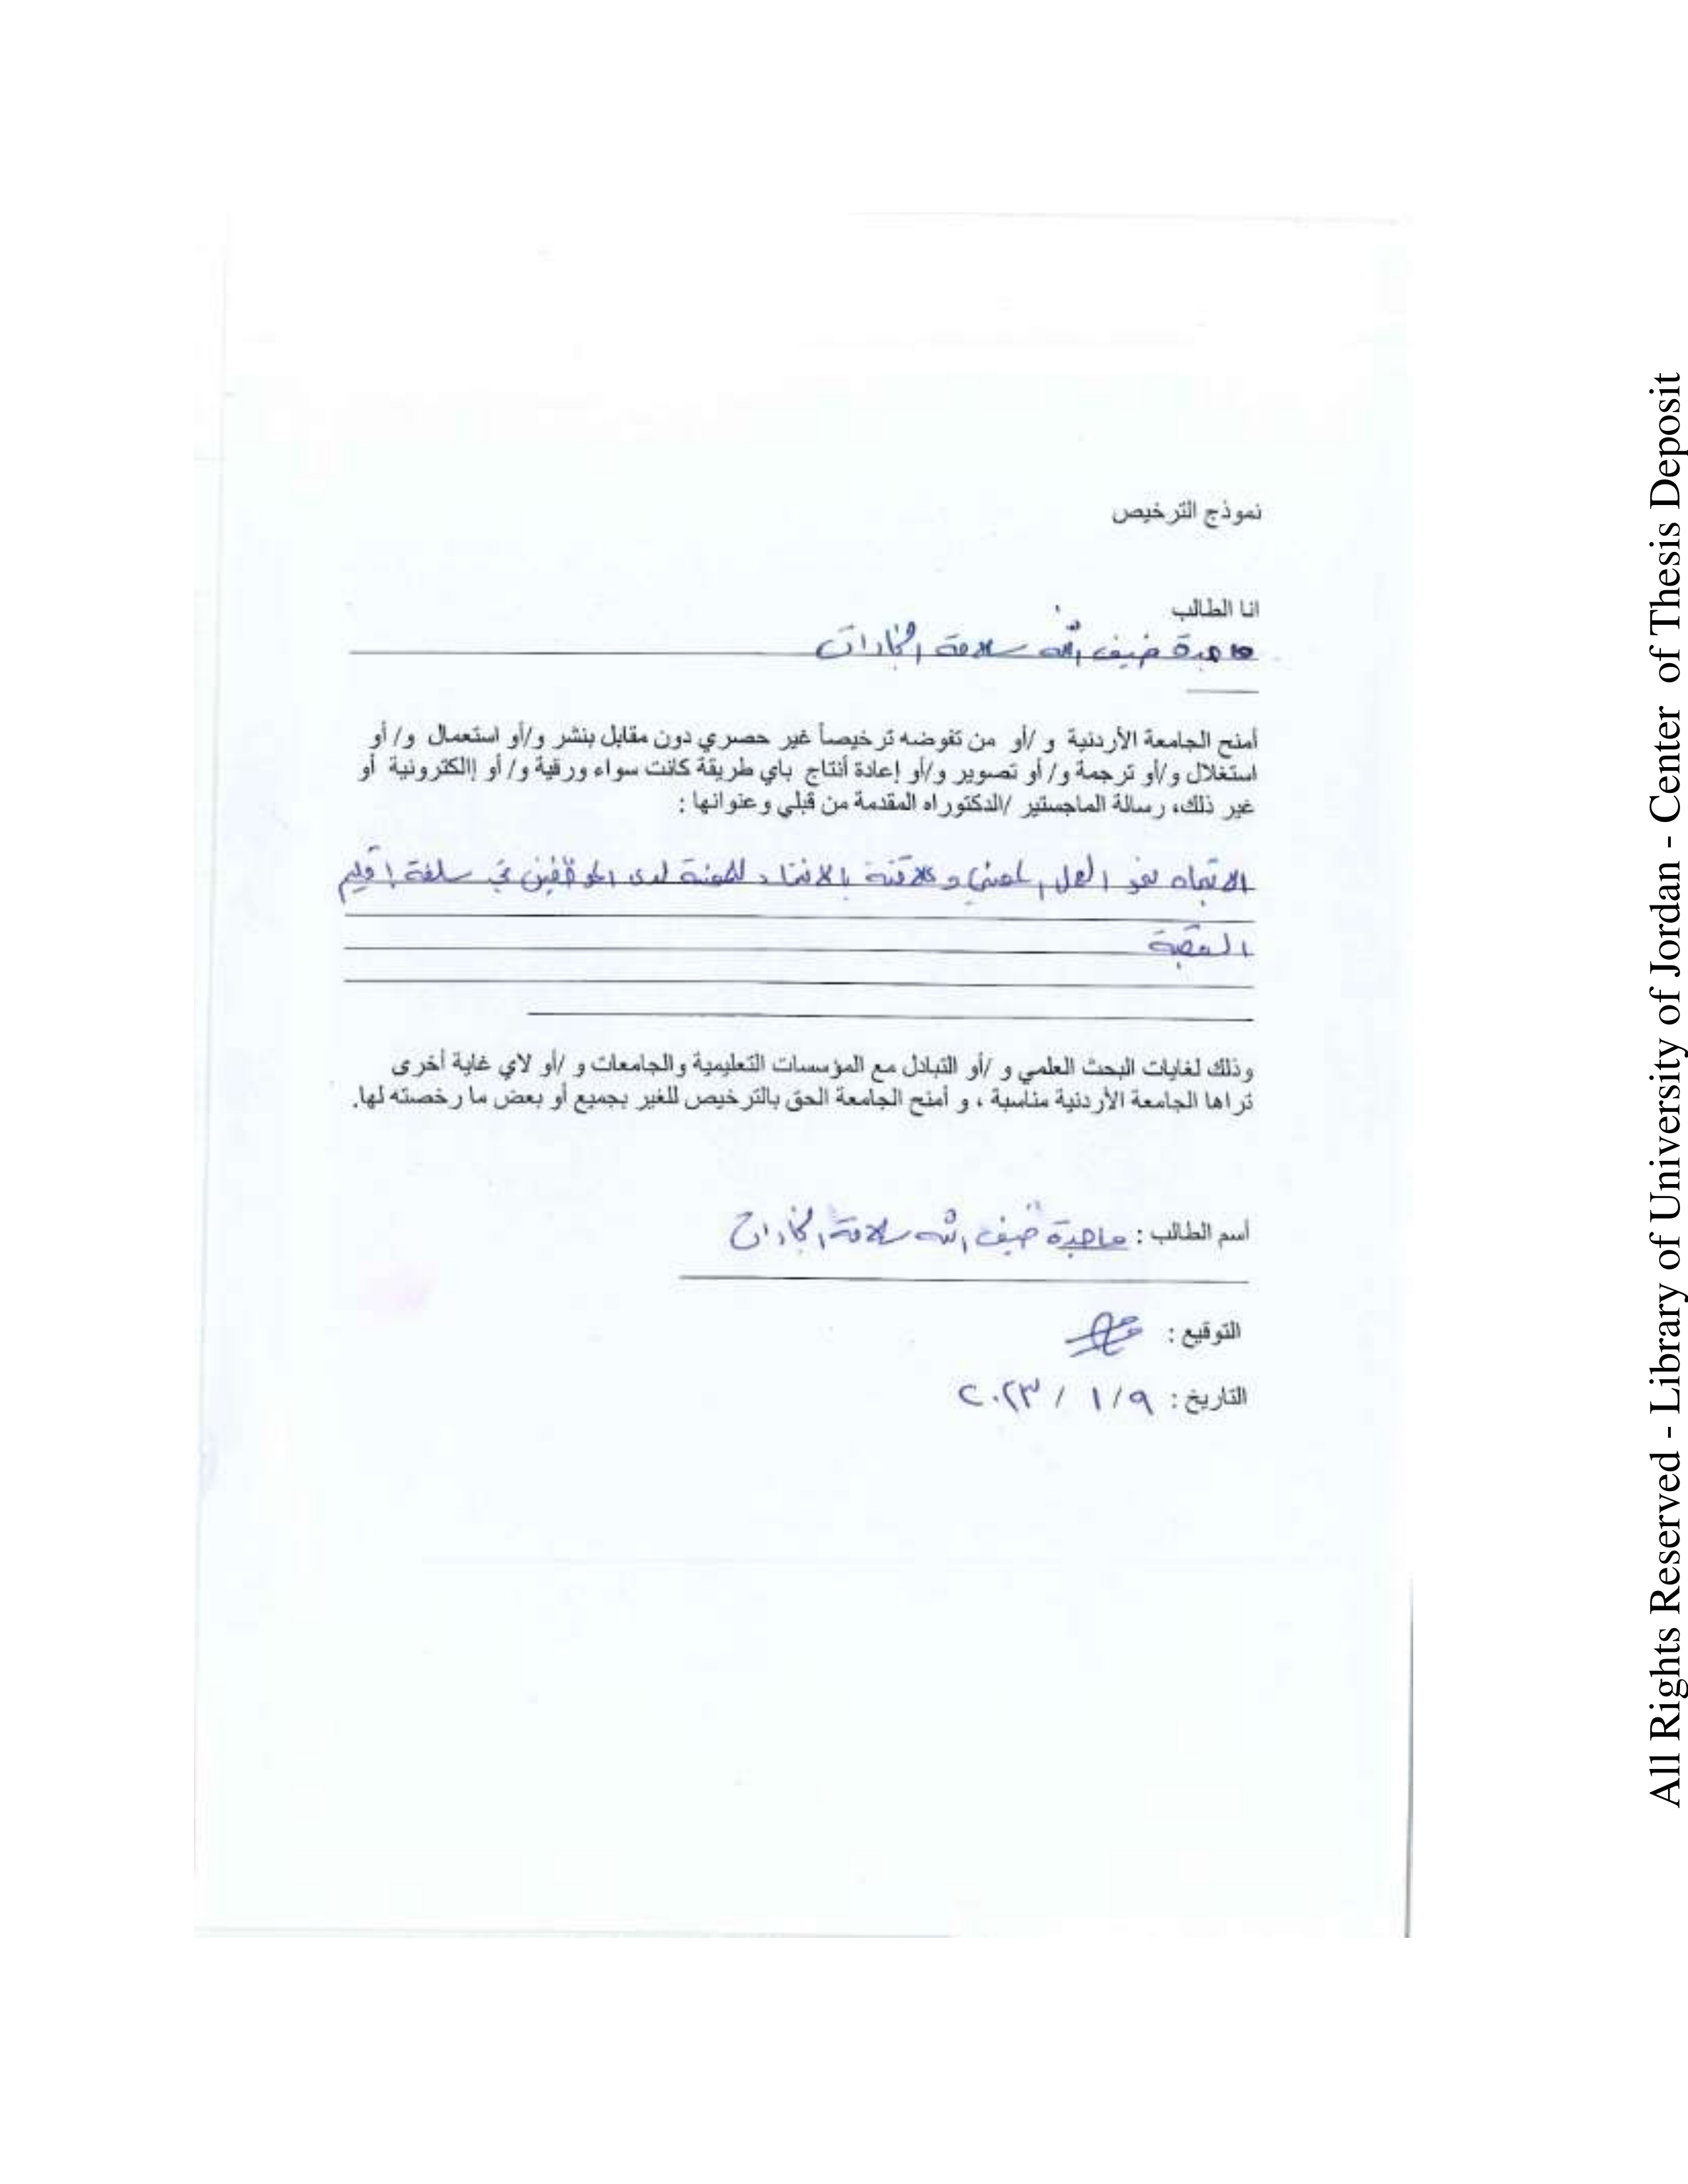 نموذج الترخيص
انا الطالب
ماجدة ضيف الله سلامة
أمنح الجامعة الأردنية و /أو من تفوضه ترخيصاً غير حصري دون مقابل بنشر و/أو استعمال و/ أو
استغلال و/أو ترجمة و/ أو تصوير و/أو إعادة أنتاج باي طريقة كانت سواء ورقية و/ أو إالكترونية أو
غير ذلك، رسالة الماجستير /الدكتوراه المقدمة من قبلي وعنوانها :
الاتجاه نحو العمل المهني وعلاقته بالانتماء للمهنة لدى الموظفين في سلطة إقليم
العقبة
وذلك لغايات البحث العلمي و /أو التبادل مع المؤسسات التعليمية والجامعات و /أو لاي غاية أخرى
تراها الجامعة الأردنية مناسبة ، و أمنح الجامعة الحق بالترخيص للغير بجميع أو بعض ما رخصته لها.
أسم الطالب : ماجدة ضيف الله سلامة
التوقيع :
التاريخ : ٩/ ١ / ٢٠٢٣
All Rights Reserved - Library of University of Jordan - Center of Thesis Deposit